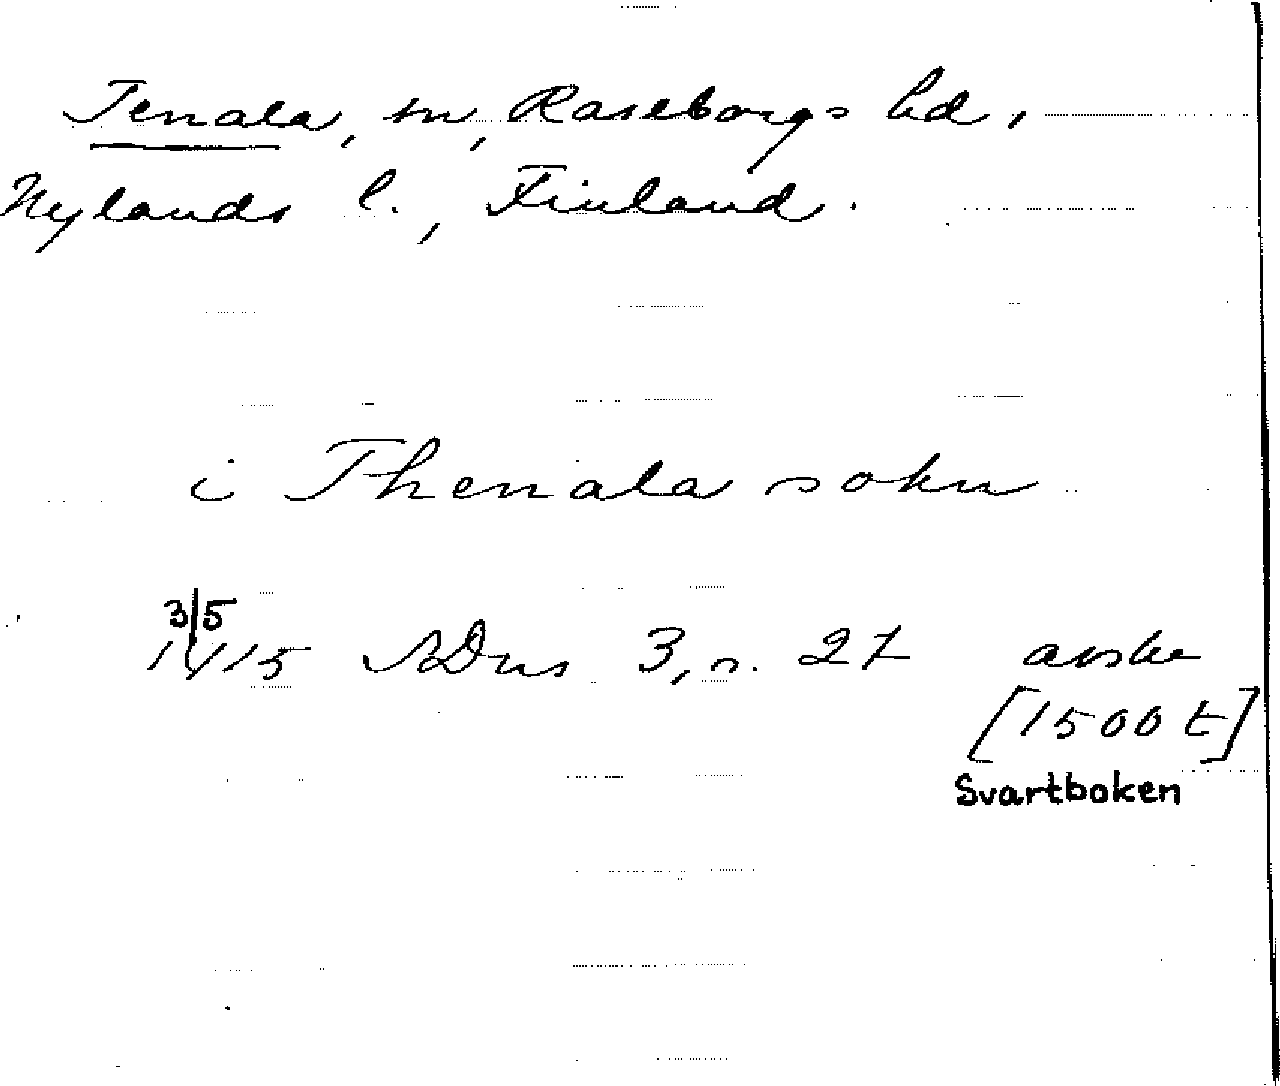 Tenala, sn, Raseborgs hd,
Nylands l., Finland.
i Thenala sokn
3/5
1415 SDns 3, s. 27 avskr
[1500 t]
Svartboken